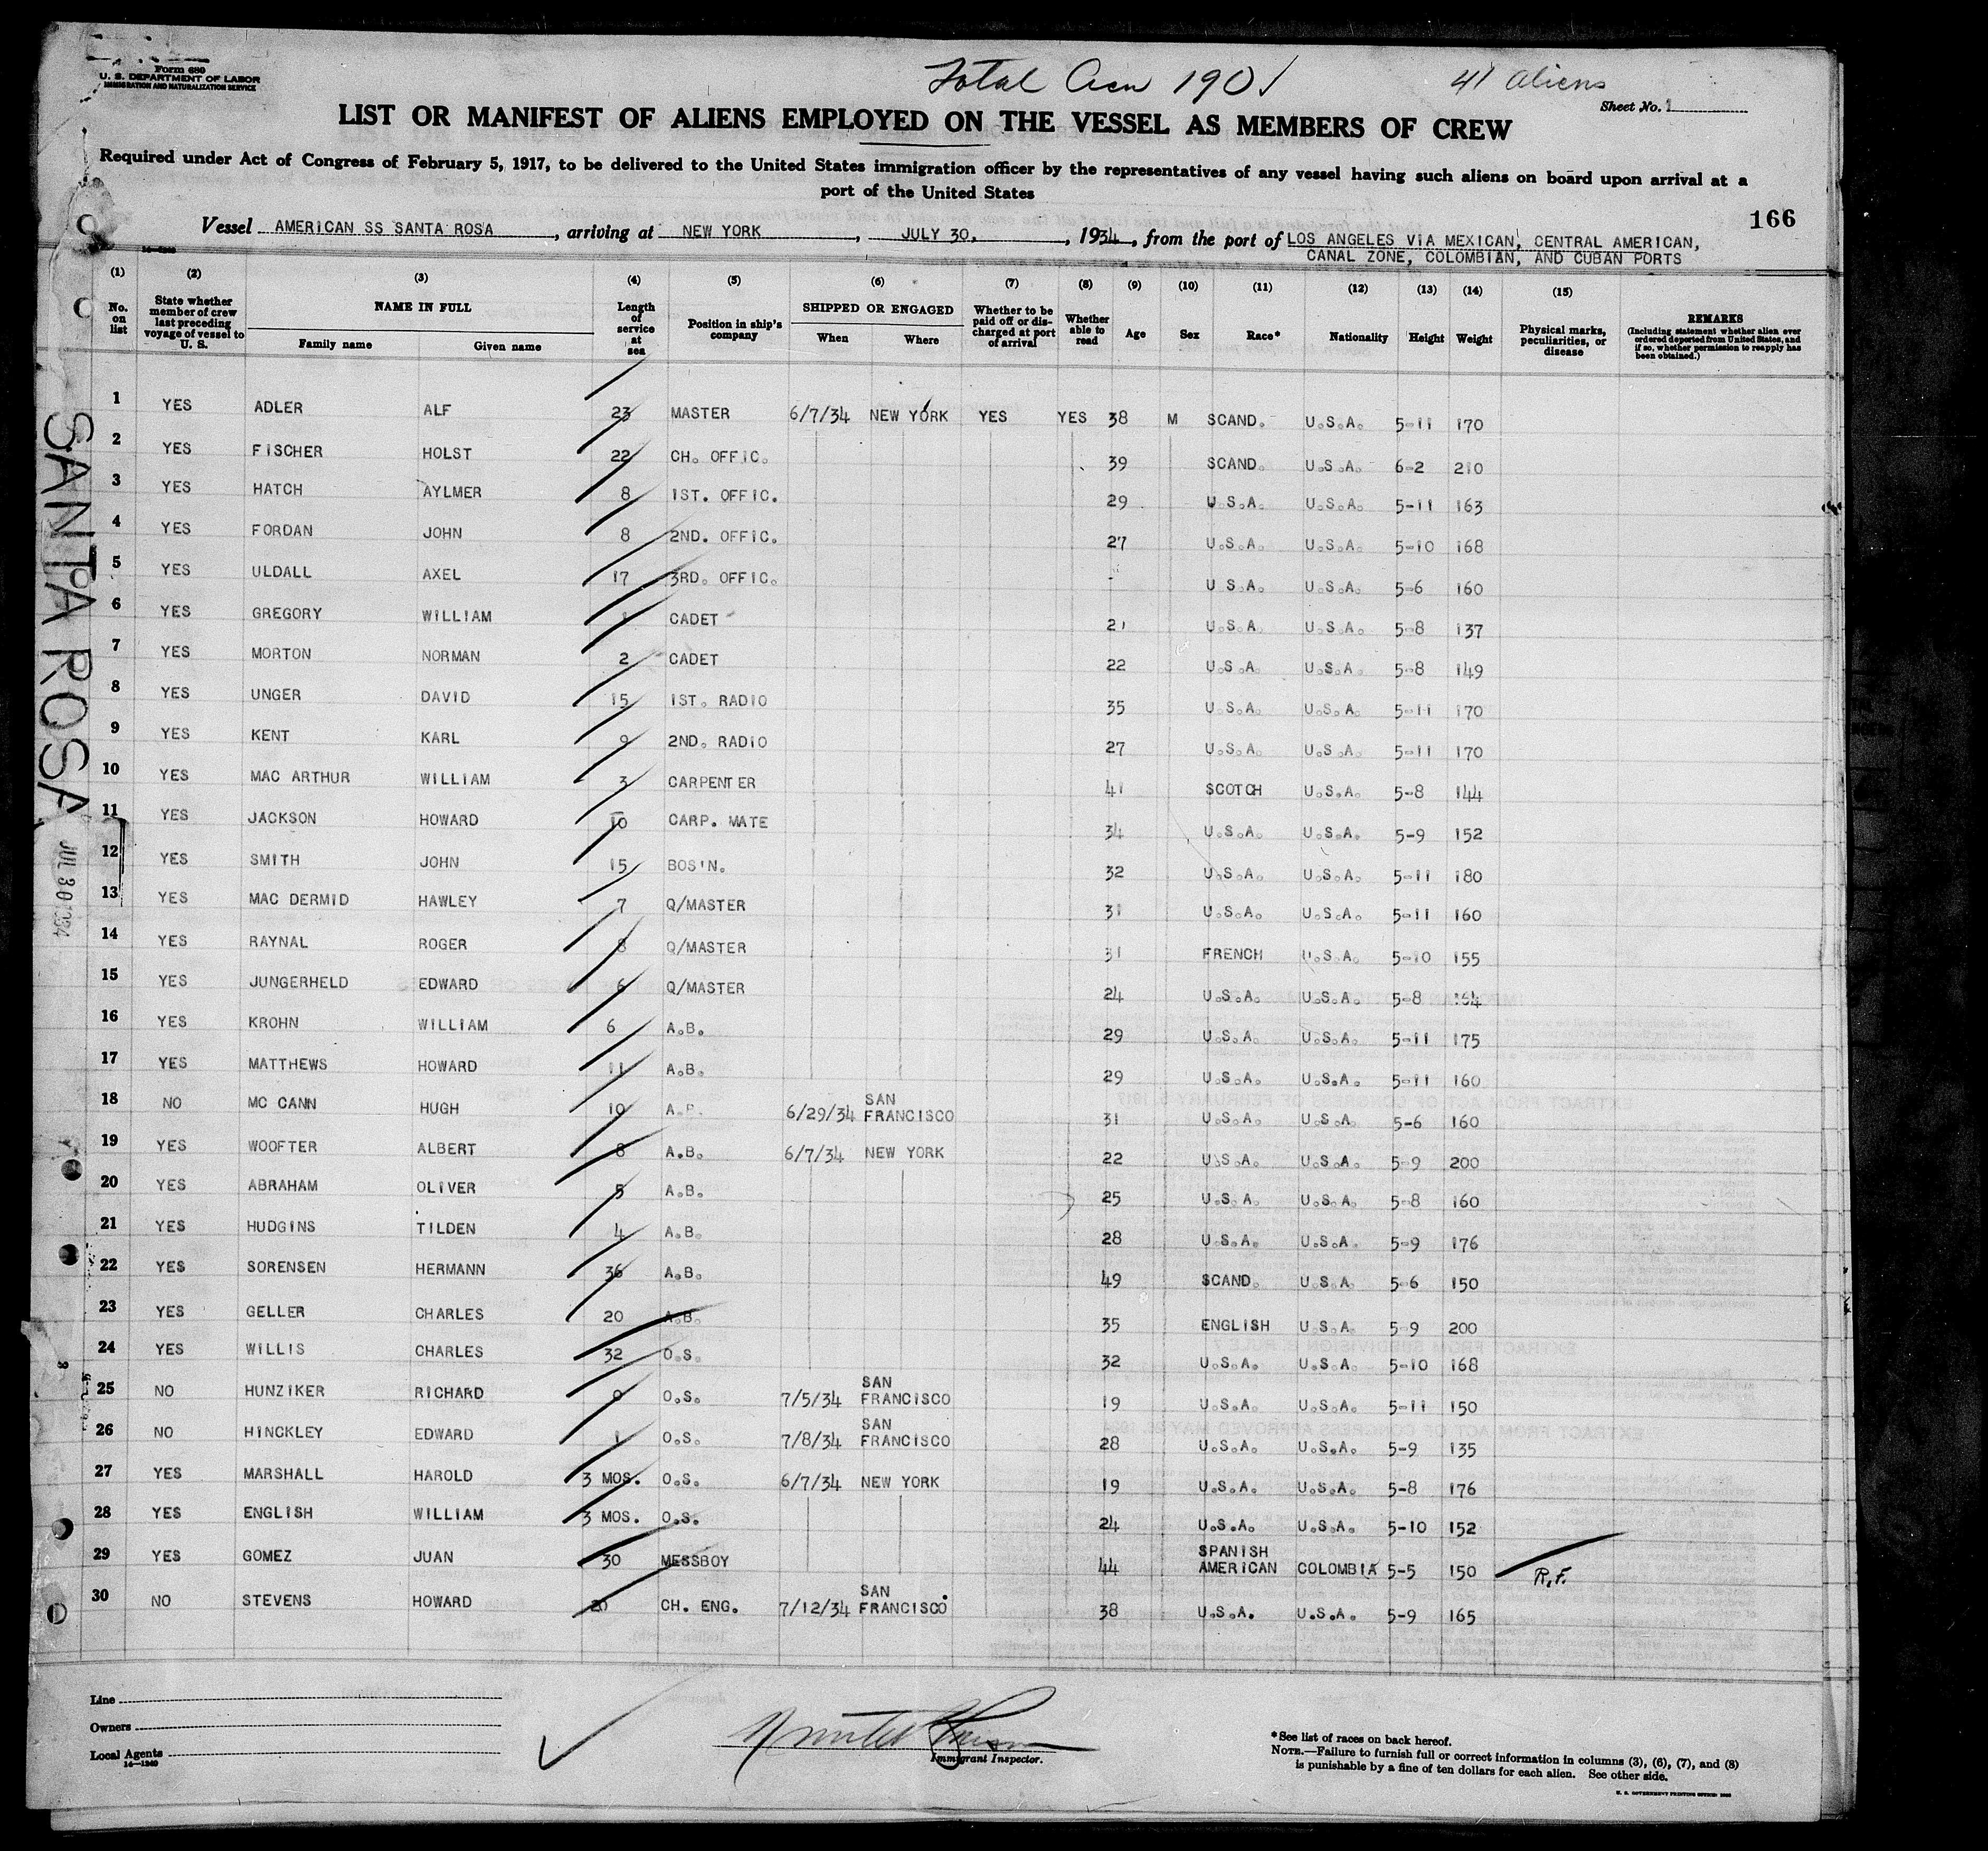 Form 680
U. S. DEPARTMENT OF LABOR
IMMIGRATION AND NATURALIZATION SERVICE
Total Crew 190
41 aliens
Sheet No. 1
LIST OR MANIFEST OF ALIENS EMPLOYED ON THE VESSEL AS MEMBERS OF CREW
Required under Act of Congress of February 5, 1917, to be delivered to the United States immigration officer by the representatives of any vessel having such aliens on board upon arrival at a
port of the United States
166
Vessel AMERICAN SS SANTA ROSA, arriving at NEW YORK, JULY 30, 1934, from the port of LOS ANGELES VIA MEXICAN, CENTRAL AMERICAN,
CANAL ZONE, COLOMBIAN, AND CUBAN PORTS
(1) (2) (3) (4) (5) (6) (7) (8) (9) (10) (11) (12) (13) (14) (15)
No. on list
State whether member of crew last preceding voyage of vessel to U. S.
NAME IN FULL
Family name Given name
Length of service at sea
Position in ship's company
SHIPPED OR ENGAGED
When Where
Whether to be paid off or discharged at port of arrival
Whether able to read
Age Sex Race* Nationality Height Weight
Physical marks, peculiarities, or disease
REMARKS
(Including statement whether alien ever ordered deported from United States, and if so, whether permission to reapply has been obtained.)
1 YES ADLER ALF 23 MASTER 6/7/34 NEW YORK YES YES 38 M SCAND. U.S.A. 5-11 170
2 YES FISCHER HOLST 22 CH. OFFIC. 39 SCAND. U.S.A. 6-2 210
3 YES HATCH AYLMER 8 1ST. OFFIC. 29 U.S.A. U.S.A. 5-11 163
4 YES FORDAN JOHN 8 2ND. OFFIC. 27 U.S.A. U.S.A. 5-10 168
5 YES ULDALL AXEL 17 3RD. OFFIC. - U S.A. U.S.A. 5-6 160
6 YES GREGORY WILLIAM 1 CADET 21 U.S.A. U.S.A. 5-8 137
7 YES MORTON NORMAN 2 CADET 22 U.S.A. U.S.A. 5-8 149
8 YES UNGER DAVID 15 1ST. RADIO 35 U.S.A. U.S.A. 5-11 170
9 YES KENT KARL 9 2ND. RADIO 27 U.S.A. U.S.A. 5-11 170
10 YES MAC ARTHUR WILLIAM 3 CARPENTER 41 SCOTCH U.S.A. 5-8 144
11 YES JACKSON HOWARD 10 CARP. MATE 34 U.S.A. U.S.A. 5-9 152
12 YES SMITH JOHN 15 BOS'N. 32 U.S.A. U.S.A. 5-11 180
13 YES MAC DERMID HAWLEY 7 Q/MASTER 31 U.S.A. U.S.A. 5-11 160
14 YES RAYNAL ROGER 8 Q/MASTER 31 FRENCH U.S.A. 5-10 155
15 YES JUNGERHELD EDWARD 6 Q/MASTER 24 U.S.A. U.S.A. 5-8 164
16 YES KROHN WILLIAM 6 A.B. 29 U.S.A. U.S.A. 5-11 175
17 YES MATTHEWS HOWARD 11 A.B. 29 U.S.A. U.S.A. 5-11 160
18 NO MC CANN HUGH 10 A.B. 6/29/34 SAN FRANCISCO 31 U.S.A. U.S.A. 5-6 160
19 YES WOOFTER ALBERT 8 A.B. 6/7/34 NEW YORK 22 U.S.A. U.S.A. 5-9 200
20 YES ABRAHAM OLIVER 5 A.B. 25 U.S.A. U.S.A. 5-8 160
21 YES HUDGINS TILDEN 4 A.B. 28 U.S.A. U.S.A 5-9 176
22 YES SORENSEN HERMANN 36 A.B. 49 SCAND. U.S.A. 5-6 150
23 YES GELLER CHARLES 20 A.B. 35 ENGLISH U.S.A. 5-9 200
24 YES WILLIS CHARLES 32 O.S. 32 U.S.A. U.S.A. 5-10 168
25 NO HUNZIKER RICHARD 0 O.S. 7/5/34 SAN FRANCISCO 19 U.S.A. U.S.A. 5-11 150
26 NO HINCKLEY EDWARD 1 O.S. 7/8/34 SAN FRANCISCO 28 U.S.A. U.S.A. 5-9 135
27 YES MARSHALL HAROLD 3 MOS. O.S. 6/7/34 NEW YORK 19 U.S.A. U.S.A. 5-8 176
28 YES ENGLISH WILLIAM 3 MOS. O.S. 24 U.S.A. U.S.A. 5-10 152
29 YES GOMEZ JUAN 30 MESSBOY 44 SPANISH AMERICAN COLOMBIA 5-5 150 R.F.
30 NO STEVENS HOWARD 20 CH. ENG. 7/12/34 SAN FRANCISCO 38 U.S.A. U.S.A. 5-9 165
SANTA ROSA
JUL 30 1934
Line
Owners
Local Agents
14—1240
Immigrant Inspector.
*See list of races on back hereof.
NOTE.—Failure to furnish full or correct information in columns (3), (6), (7), and (8)
is punishable by a fine of ten dollars for each alien. See other side.
U. S. GOVERNMENT PRINTING OFFICE: